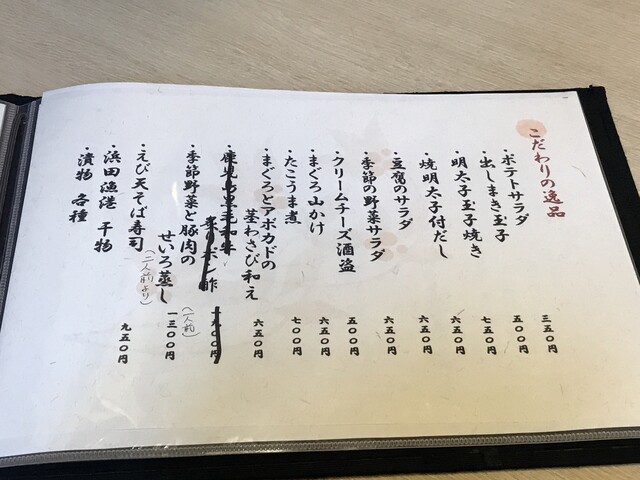 こだわりの逸品
・ポテトサラダ 三五〇円
・出しまき玉子 五〇〇円
・明太子玉子焼き 七五〇円
・焼明太子付だし 六五〇円
・豆腐のサラダ 六五〇円
・季節の野菜サラダ 六五〇円
・クリームチーズ酒盗 五〇〇円
・まぐろ山かけ 六五〇円
・たこうま煮 七〇〇円
・まぐろとアボカドの
茎わさび和え 六五〇円
・鹿児島黒毛和牛
ポン酢 一九〇〇円
・季節野菜と豚肉の
せいろ蒸し (一人前) 一三〇〇円
・えび天そば寿司 (二人前より)
・浜田漁港 干物 九五〇円
・漬物 各種